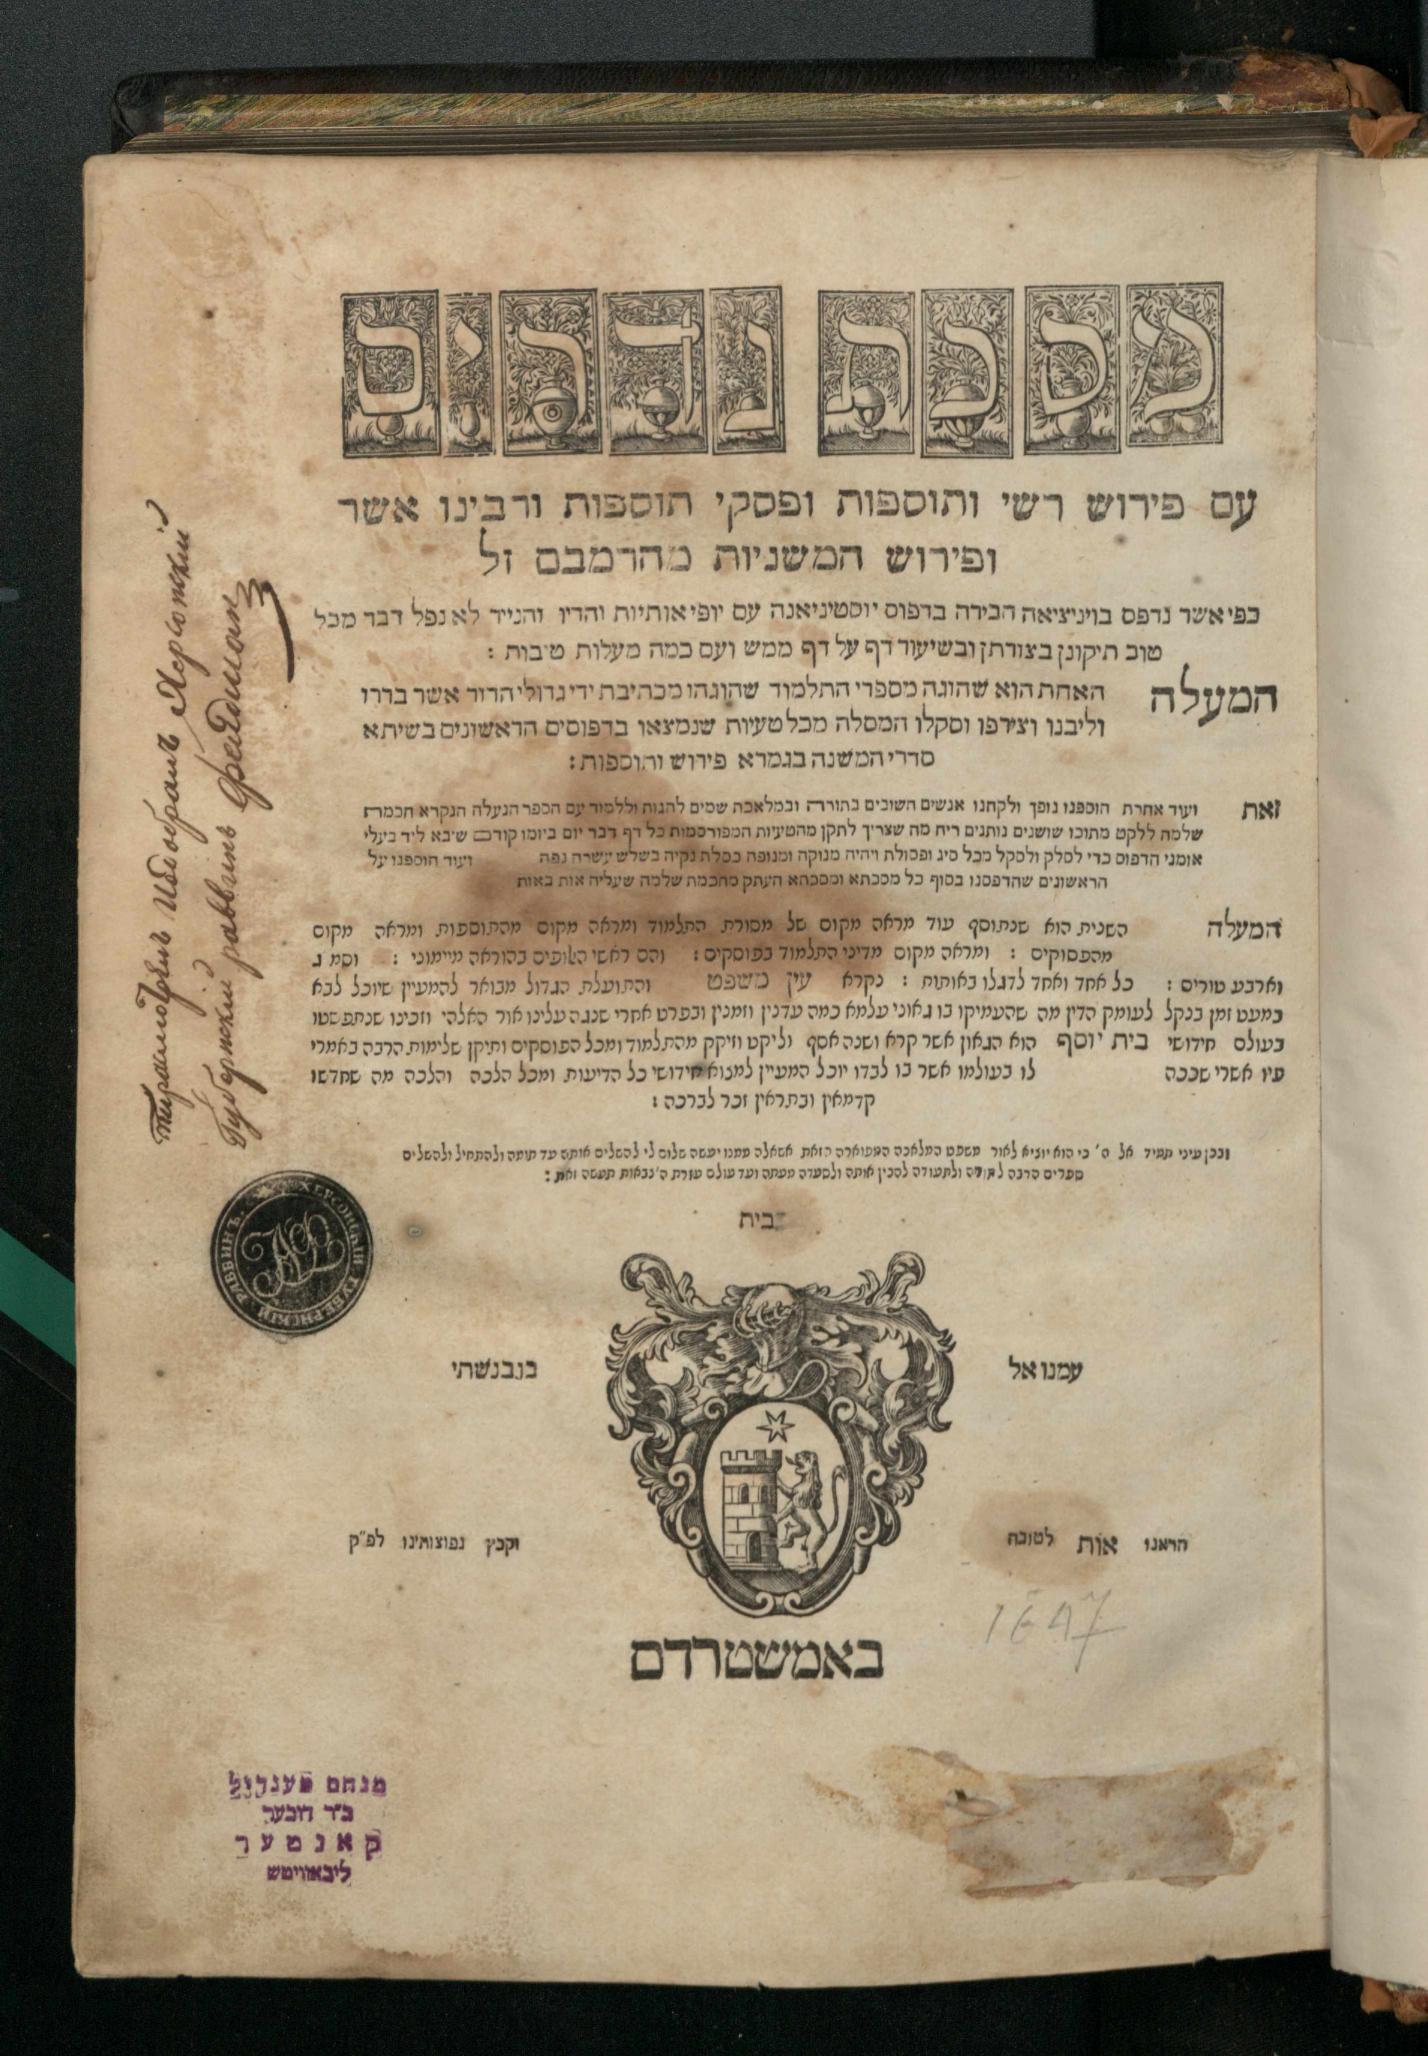 מסכת נדרים
עם פירוש רשי ותוספות ופסקי תוספות ורבינו אשר
ופירוש המשניות מהרמבם זל
כפי אשר נדפס בויניציאה הבירה בדפוס יוסטיניאנה עם יופי אותיות והדיו והנייר לא נפל דבר מכל
טוב תיקונן בצורתן ובשיעור דף על דף ממש ועם כמה מעלות טובות :
המעלה האחת הוא שהוגה מספרי התלמוד שהוגהו מכתיבת ידי גדולי הדור אשר בררו
וליבנו וצירפו וסקלו המסלה מכל טעיות שנמצאו בדפוסים הראשונים בשיתא
סדרי המשנה בגמרא פירוש ותוספות :
זאת ועוד אחרת הוספנו נופך ולקחנו אנשים חשובים בתורה ובמלאכת שמים להגות וללמוד עם הספר הנעלה הנקרא חכמת
שלמה ללקט מתוכו שושנים נותנים ריח מה שצריך לתקן מהטעיות המפורסמות כל דף דבר יום ביומו קודם שיבא ליד בעלי
אומני הדפוס כדי לסלק ולסקל מכל סיג ופסולת ויהיה מנוקה ומנופה כסלת נקיה בשלש עשרה נפה ועוד הוספנו על
הראשונים שהדפסנו בסוף כל מסכתא ומסכתא העתק מחכמת שלמה שעליה אות באות
המעלה השנית הוא שנתוסף עוד מראה מקום של מסורת התלמוד ומראה מקום מהתוספות ומראה מקום
מהפסוקים : ומראה מקום מדיני התלמוד בפוסקים : והם ראשי האופים בהוראה מיימוני : וסמג
וארבע טורים : כל אחד ואחד לדגלו באותות : נקרא עין משפט והתועלת הגדול מבואר להמעיין שיוכל לבא
במעט זמן בנקל לעומק הדין מה שהעמיקו בו גאוני עלמא כמה עדנין וזמנין ובפרט אחרי שנגה עלינו אור האלהי וזכינו שנתפשטו
בעולם חידושי בית יוסף הוא הגאון אשר קרא ושנה אסף וליקט וזיקק מהתלמוד ומכל הפוסקים ותיקן שלימות הרבה באמרי
פיו אשרי שככה לו בעולמו אשר בו לבדו יוכל המעיין למצוא חידושי כל הדיעות ומכל הלכה והלכה מה שחדשו
קדמאין ובתראין זכר לברכה :
ובכן עיני תמיד אל ה' כי הוא יוציא לאור משפט המלאכה המפוארה הזאת אשאלה ממנו יעשה שלום לי להשלים אותה עד תומה ולהתחיל ולהשלים
ספרים הרבה לתורה ולתעודה להכין אותה ולסעדה מעתה ועד עולם עזרת ה' צבאות תעשה זאת :
בית
עמנואל בנבנשתי
הראנו אות לטובה וקבץ נפוצותינו לפ"ק
1647
באמשטרדם
Губернскій раввинъ Фридманъ
ХЕРСОНСКІЙ ГУБЕРНСКІЙ РАВВИНЪ.
АФ
מנחם מענדיל
ב"ר דובער
קאנטער
ליבאוויטש